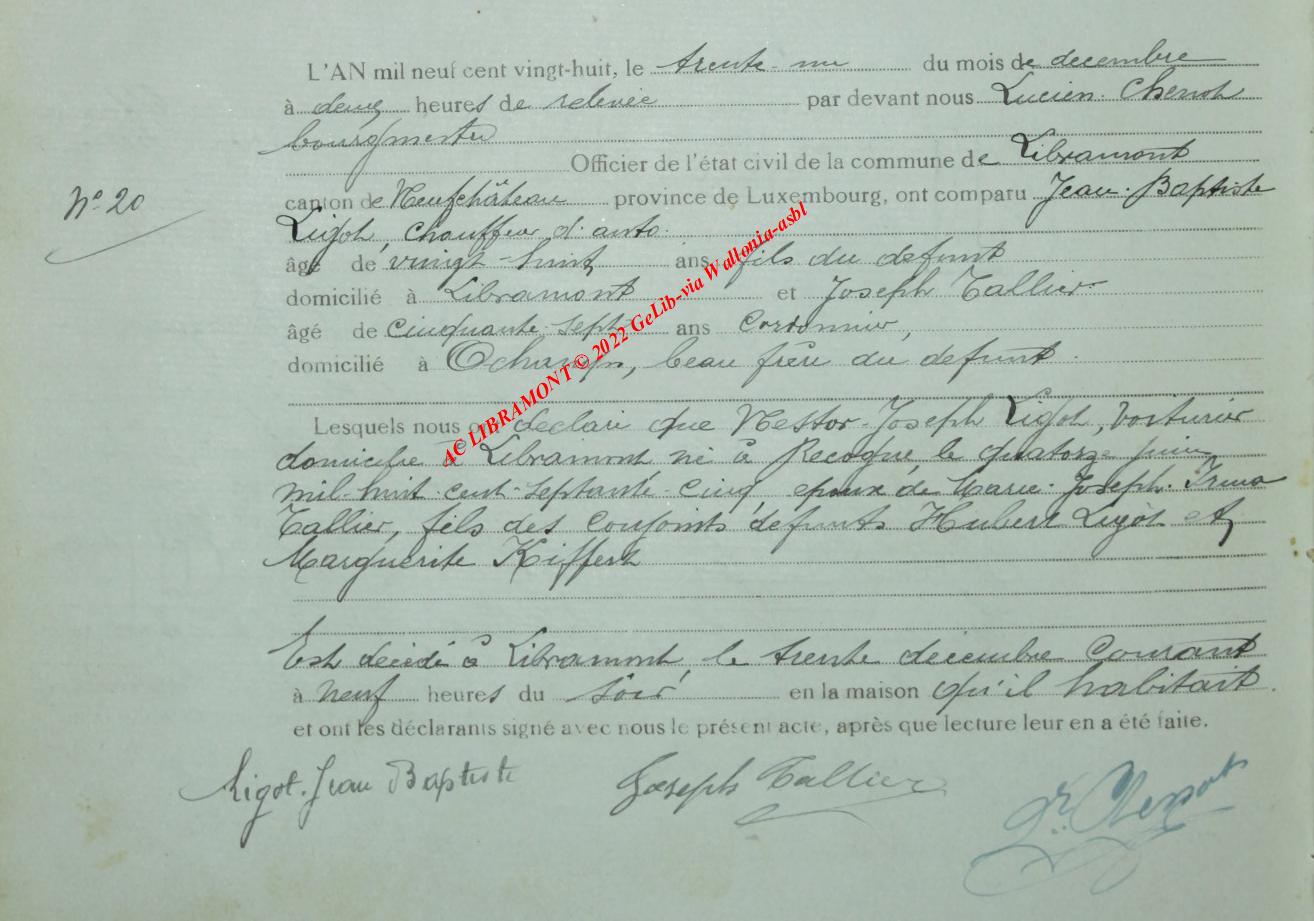 L'AN mil neuf cent vingt-huit, le trente-un du mois de décembre
à deux heures de relevée par devant nous Lucien Chenot
bourgmestre
Officier de l'état civil de la commune de Libramont
N° 20
canton de Neufchâteau province de Luxembourg, ont comparu Jean-Baptiste
Ligot, chauffeur d'auto
âgé de vingt-huit ans fils du défunt
domicilié à Libramont et Joseph Tallier
âgé de cinquante-sept ans cordonnier,
domicilié à Ochamps, beau frère du défunt
Lesquels nous ont déclaré que Nestor-Joseph Ligot, voiturier
domicilié à Libramont né à Recogne le quatorze juin
mil-huit-cent-septante-cinq, époux de Marie-Joseph-Irma
Tallier, fils des conjoints défunts Hubert Ligot et
Marguerite Kiffert
Est décédé à Libramont, le trente décembre courant
à neuf heures du soir en la maison qu'il habitait.
et ont les déclarants signé avec nous le présent acte, après que lecture leur en a été faite.
Ligot. Jean Baptiste Joseph Tallier Dr. Chenot
AC LIBRAMONT © 2022 GeLib-via Wallonia-asbl